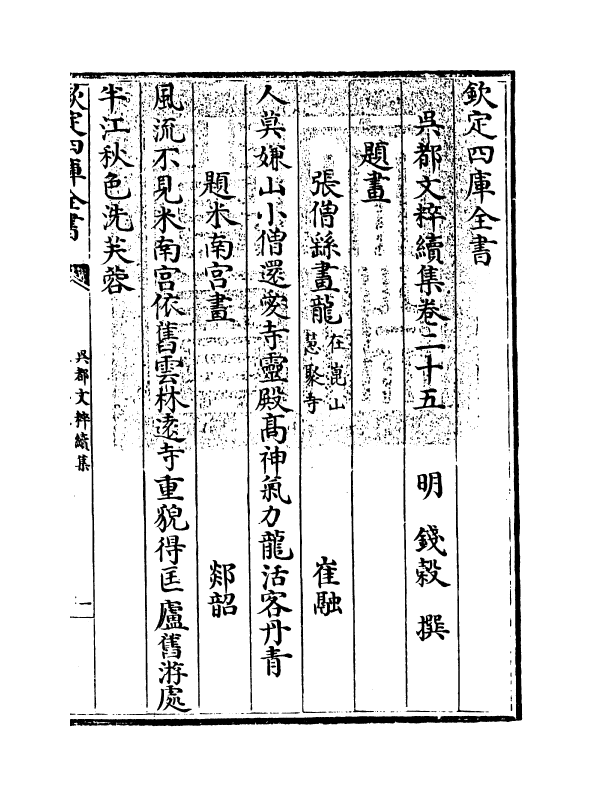 欽定四庫全書
吳都文粹續集卷二十五 明 錢榖 撰
題畫
張僧繇畫龍在崑山慧聚寺 崔融
人莫嫌山小僧還愛寺靈殿髙神氣力龍活客丹青
題米南宫畫 郯韶
風流不見米南宫依舊雲林逺寺重貌得匡廬舊游處
半江秋色洗芙蓉
欽定四庫全書
吳都文粹續集
一